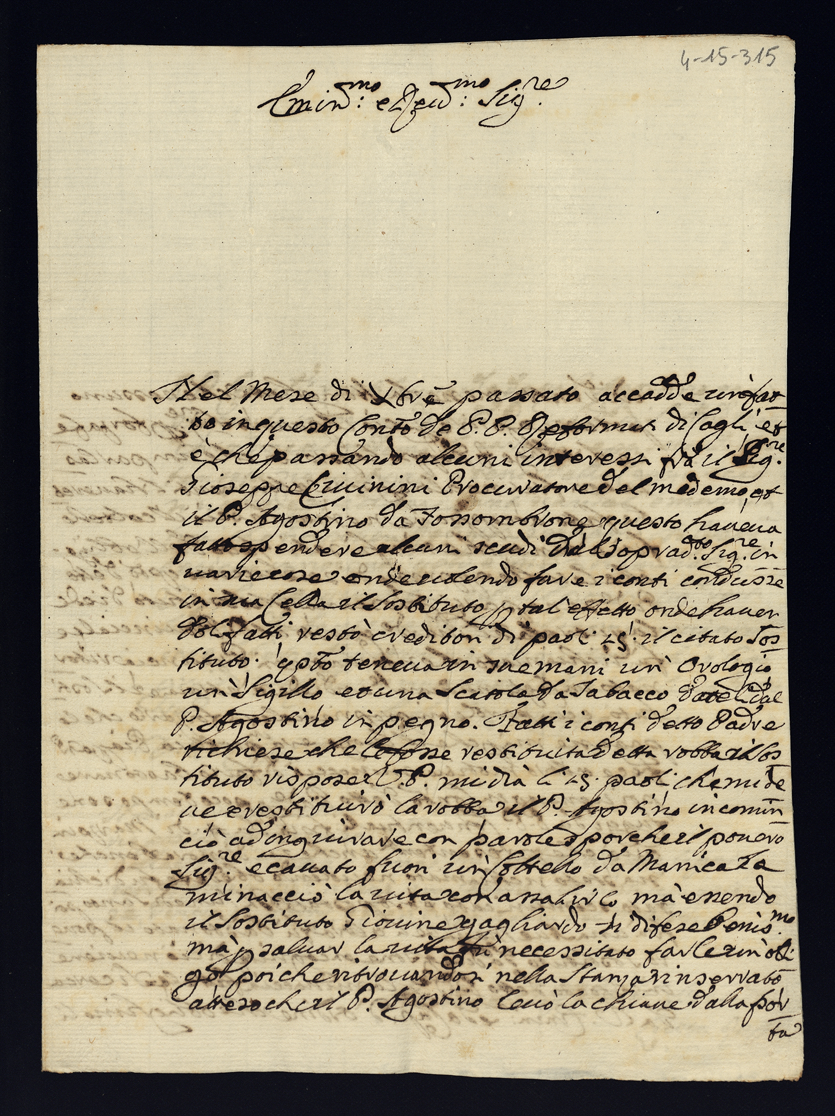 4-15-315
Emin.mo e Rev.mo Sig.re
Nel Mese di Xbre passato accadde un fat
to in questo Conto de P.P. Reformati di Cagli et
è che passando alcuni interessi frà il Sig.re
Gioseppe Civinini Procuratore del medemo, et
il P. Agostino da Fossombrone questo haveva
fatto spendere alcuni scudi dal soprad.to Sig.re in
varie cose onde volendo fare i conti condusse
in sua Cella il Sostituto p tal effetto onde haven
doli fatti restò creditori di paoli 25: il citato Sos
tituto. teneva in sue mani un Orologio
un Sigillo et una Scatola da Tabacco dateli dal
P. Agostino in pegno. Fatti i conti detto Padre
richiese che le fosse restituita detta robba il Sos
tituto rispose V.P. mi dia li 25 paoli che mi de
ve e restituirò la robba il P. Agostino incomin
ciò ad ingiurare con parole sporche il povero
Sig.re e cavato fuori un Coltello da Manica
minacciò la vita con assalirlo mà essendo
il Sostituto Giovine gagliardo si difese Benis.mo
mà p salvar la vita fù necessitato farle un obli
go poiche ritrovandosi nella Stanza rinserrato
atteso che il P. Agostino levò la chiave dalla por
ta